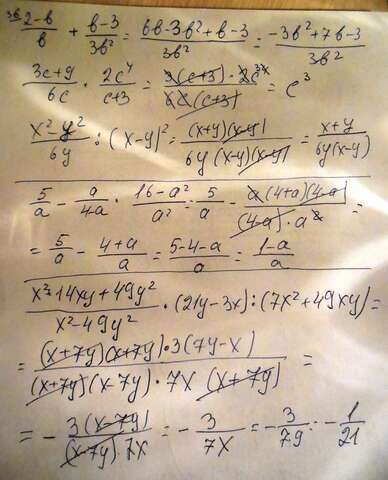 3в 2-в/в + в-3/3в² = 6в-3в²+в-3/3в² = -3в²+7в-3/3в²
3c+9/6c · 2c⁴/c+3 = 3(c+3)·2c⁴³/6c(c+3) = c³
x²-y²/6y : (x-y)² = (x+y)(x-y)/6y(x-y)(x-y) = x+y/6y(x-y)
5/a - a/4-a · 16-a²/a² = 5/a - a(4+a)(4-a)/(4-a)·a² =
= 5/a - 4+a/a = 5-4-a/a = 1-a/a
x²+14xy+49y²/x²-49y² · (21y-3x) : (7x²+49xy) =
= (x+7y)(x+7y)·3(7y-x)/(x+7y)(x-7y)·7x(x+7y) =
= - 3(x-7y)/(x-7y)·7x = - 3/7x = - 3/79 : - 1/21